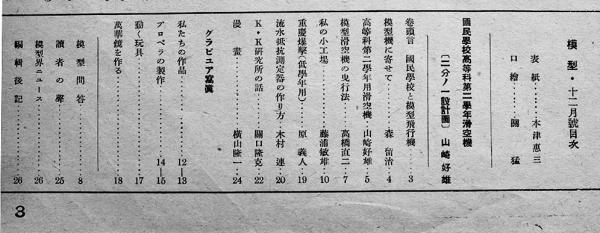 模型・十二月號目次
表紙………木津惠三
口繪………關猛
國民學校高等科第二學年滑空機
〔二分ノ一設計圖〕山崎好雄
卷頭言 國民學校と模型飛行機………3
模型機に寄せて………森留治………4
高等科第二學年用滑空機………山崎好雄………5
模型滑空機の曳行法………高橋直二………7
私の小工場………藤浦敏雄………10
重慶爆擊(低學年用)………原義人………19
流水抵抗測定器の作り方………木村連………20
K・K研究所の話………關口隆克………22
漫畫………橫山隆一………24
グラビユア寫眞
私たちの作品………12—13
プロペラの製作………14—15
動く玩具………17
萬華鏡を作る………18
模型問答………8
讀者の聲………25
模型界ニュース………26
編輯後記………26
3